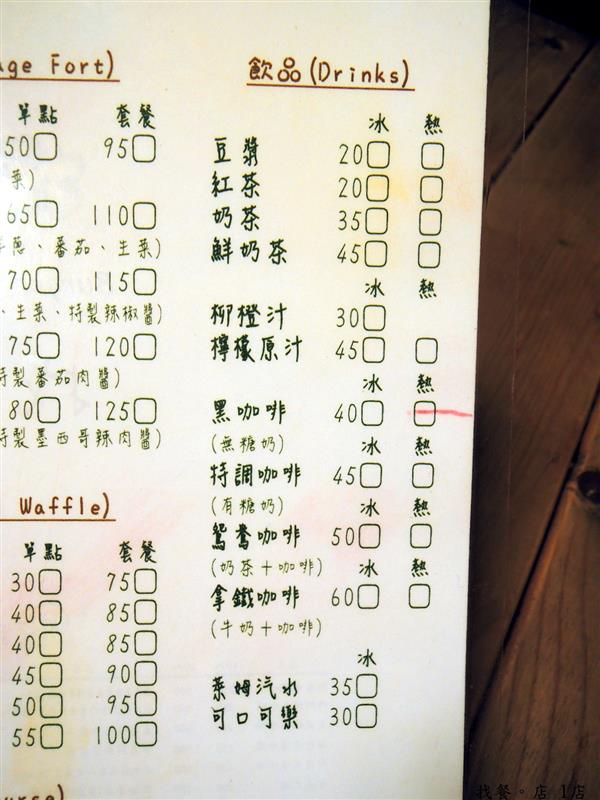 age Fort)
單點 套餐
50 95
菜)
65 110
洋蔥、番茄、生菜)
70 115
、生菜、特製辣椒醬)
75 120
特製番茄肉醬)
80 125
特製墨西哥辣肉醬)
Waffle)
單點 套餐
30 75
40 85
40 85
45 90
50 95
55 100
飲品(Drinks)
冰 熱
豆漿 20
紅茶 20
奶茶 35
鮮奶茶 45
冰 熱
柳橙汁 30
檸檬原汁 45
冰 熱
黑咖啡 40
(無糖奶) 冰 熱
特調咖啡 45
(有糖奶) 冰 熱
鴛鴦咖啡 50
(奶茶+咖啡) 冰 熱
拿鐵咖啡 60
(牛奶+咖啡)
冰
萊姆汽水 35
可口可樂 30
找餐。店 1店